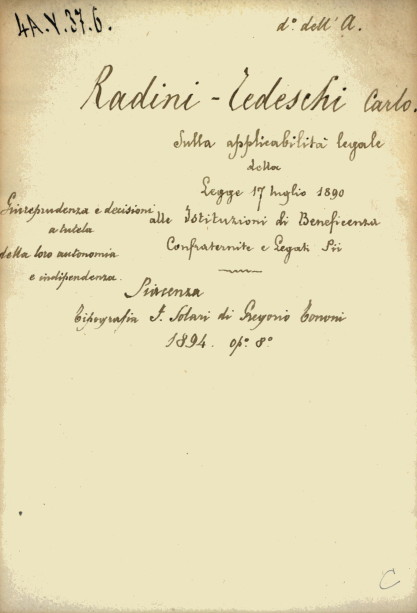 4A.Y.37.6.
d° dell' A.
Radini - Tedeschi Carlo.
Sulla applicabilità legale
della
Legge 17 luglio 1890
alle Istituzioni di Beneficenza
Confraternite e Legati Pii
Giurisprudenza e decisioni
a tutela
della loro autonomia
e indipendenza.
Piacenza
Tipografia F. Solari di Gregorio Tononi
1894. op° 8°
C